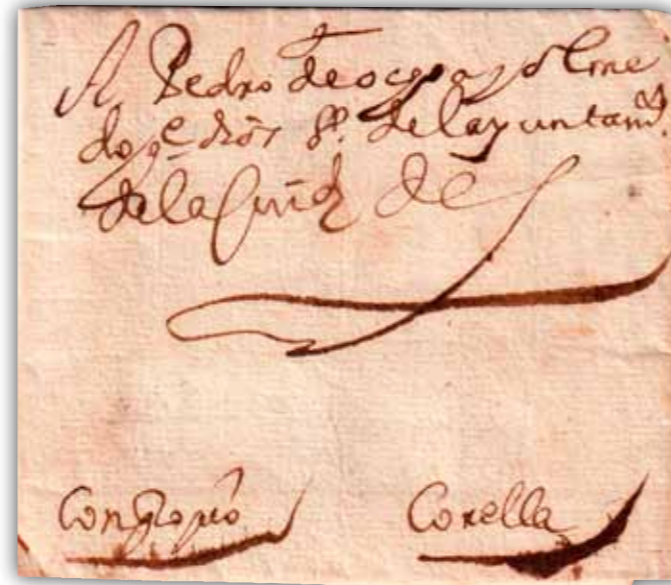 A Pedro de ocya y olme
do g.e dios s.o delayuntam.to
dela Ciud de
Con propio Corella